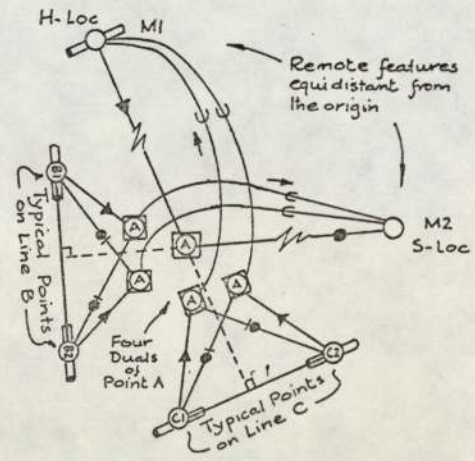 H-Loc
M1
Remote features
equidistant from
the origin
B1
Typical Points
on Line B
B2
A
A
A
A
A
M2
S-Loc
Four
Duals
of
Point A
C2
C1
Typical Points
on Line C